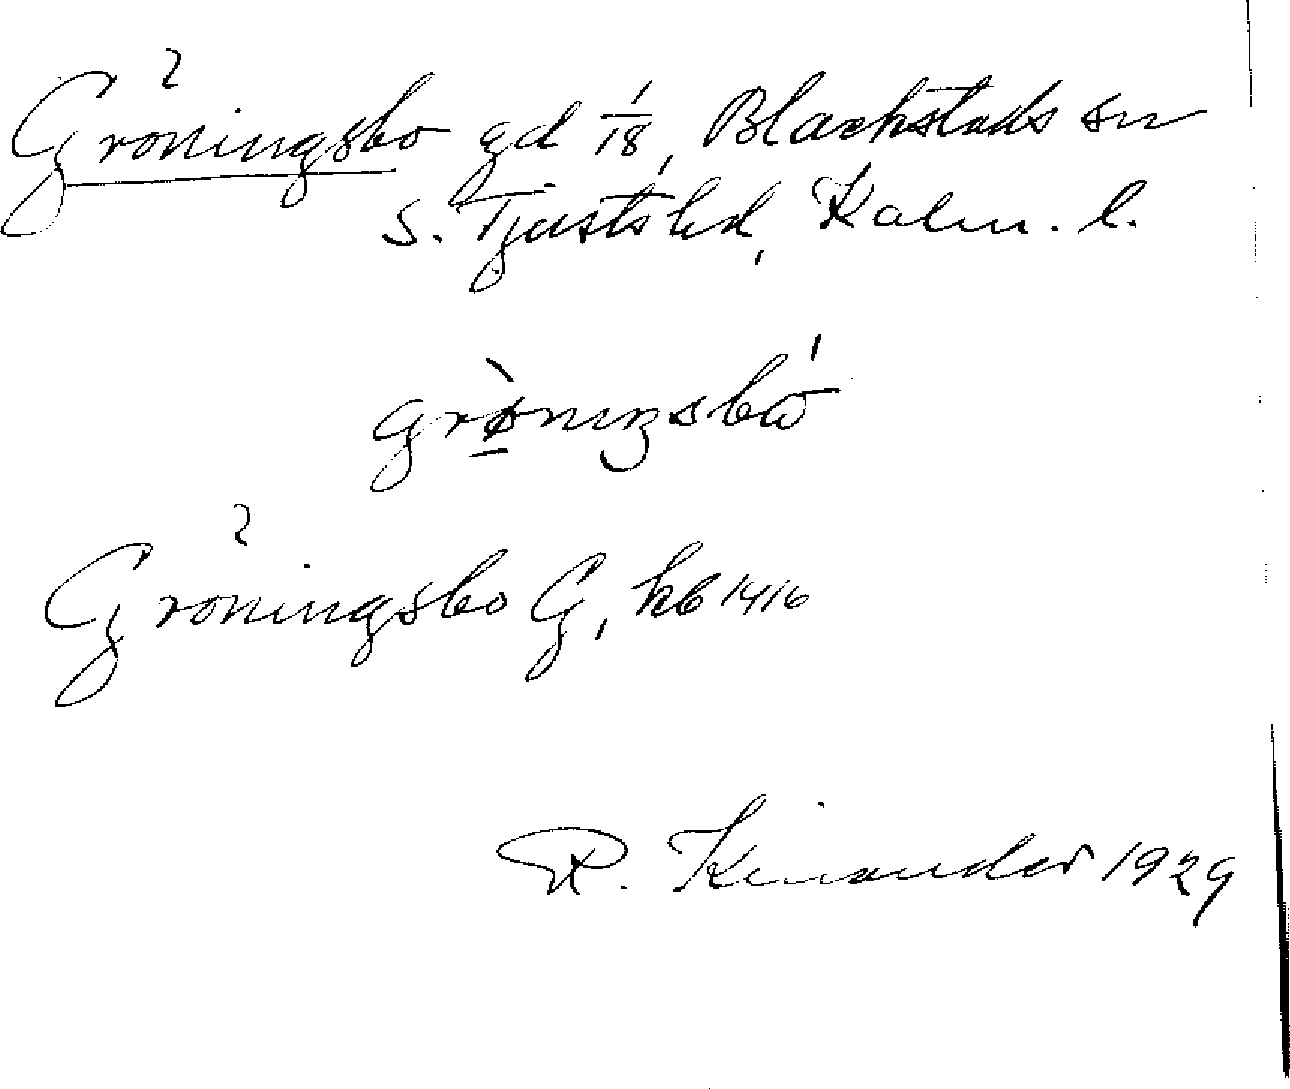 Gröningsbo gd 1/8, Blackstads sn
S. Tjusts hd, Kalm. l.
grø̀ni̮ŋsbω̄́
Gröningsbo G, kb 1416
R. Kinander 1929